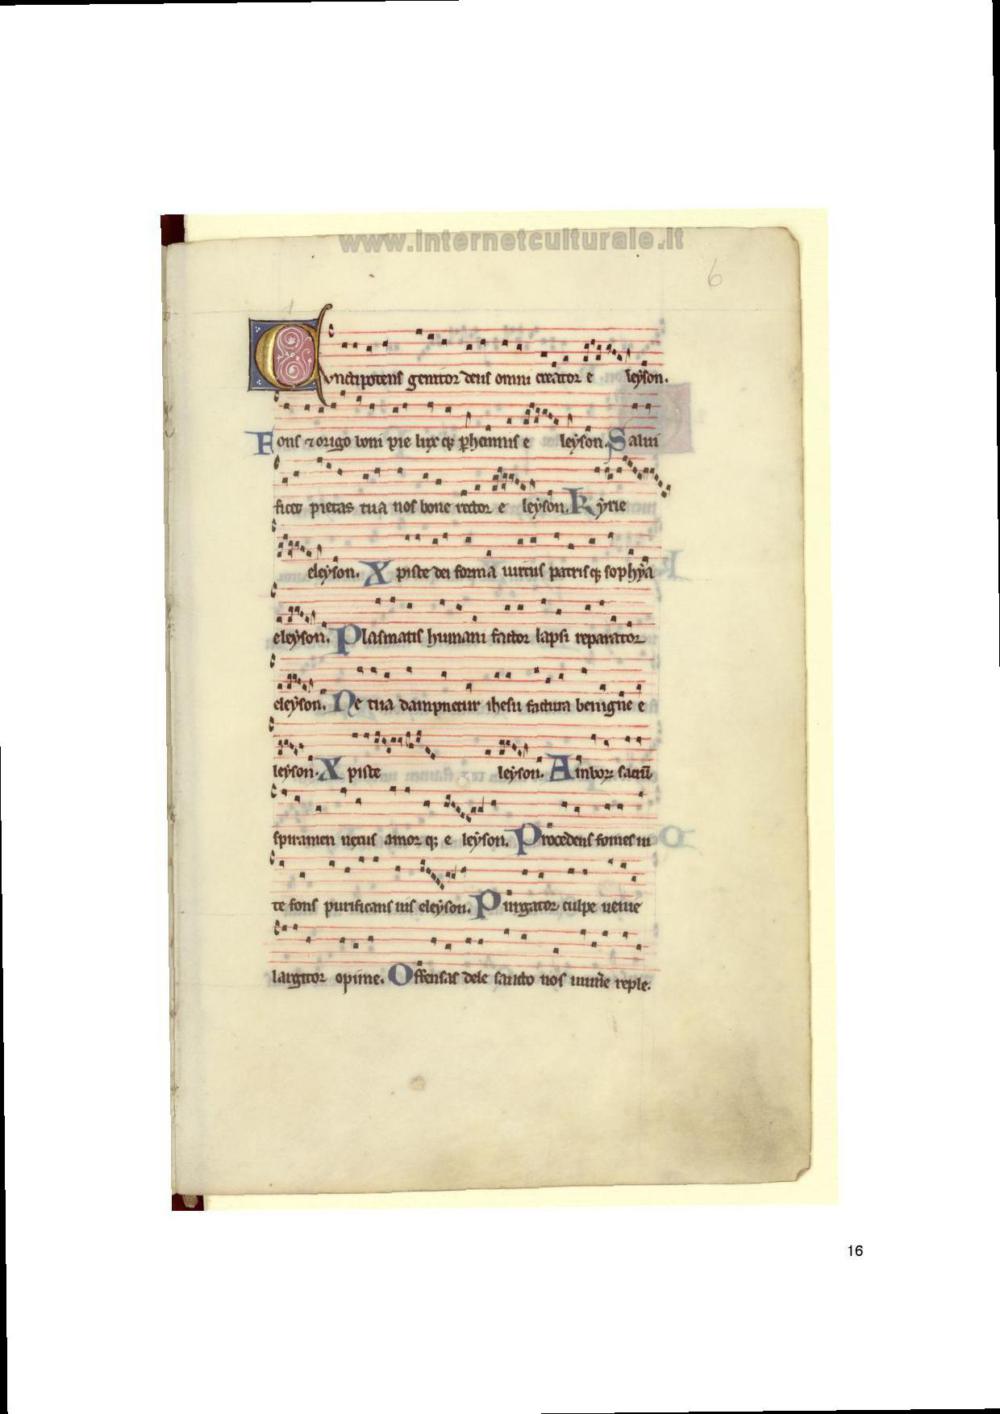 www.internetculturale.it
6
Cunctipotens genitor deus omni creator e leyson.
Fons ⁊ origo boni pie lux q; phennis e leyson. Salui
ficet pietas tua nos bone rector e leyson. Kyrie
eleyson. Xpiste dei forma uirtus patris q; sophya
eleyson. Plasmatis humani factor lapsi reparator
eleyson. Ne tua dampnetur ihesu factura benigne e
leyson. Xpiste leyson. Amborum sacrū
spiramen nexus amor q; e leyson. Procedens fomes ui
te fons purificans uis eleyson. Purgator culpe uenie
largitor opime. Offensas dele sancto nos munere reple.
16